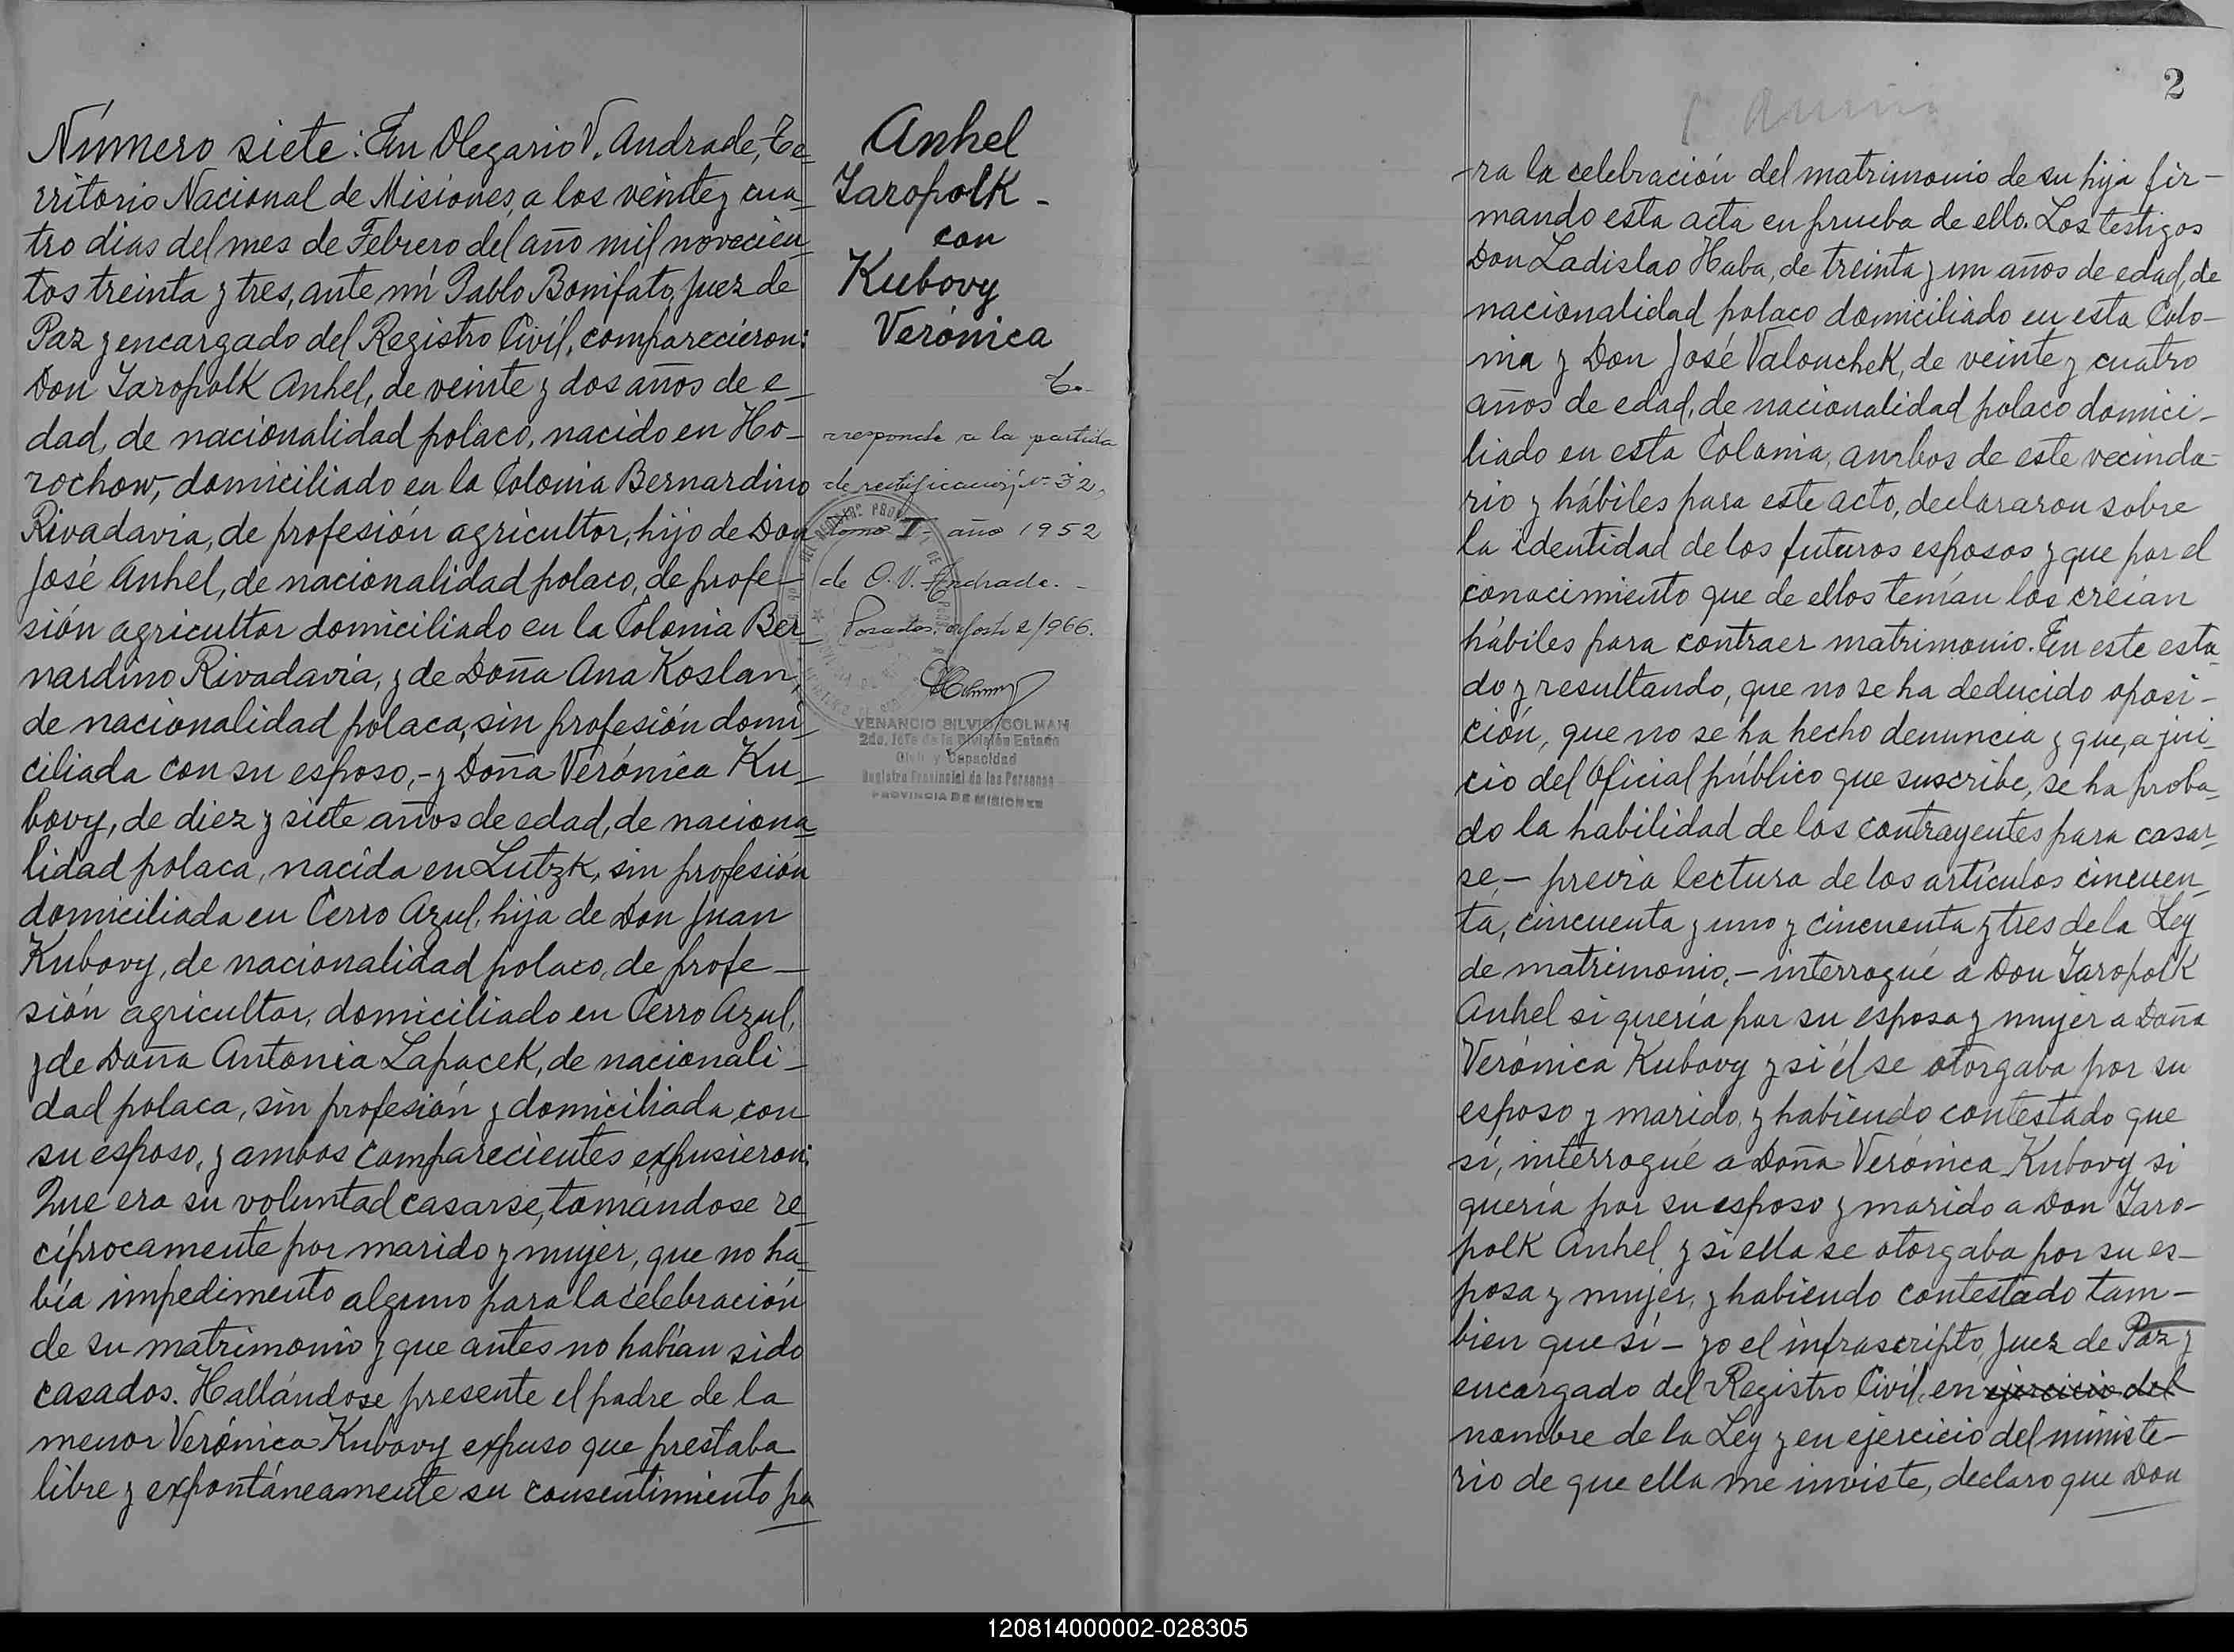 Número siete: En Olegario V. Andrade, Te-
rritorio Nacional de Misiones, a los veinte y cua-
tro dias del mes de Febrero del año mil novecien-
tos treinta y tres, ante mí Pablo Bonifato, Juez de
Paz y encargado del Registro Civil, comparecieron:
Don Jaropolk Anhel, de veinte y dos años de e-
dad, de nacionalidad polaco, nacido en Ho-
rochow, domiciliado en la Colonia Bernardino
Rivadavia, de profesión agricultor, hijo de Don
José Anhel, de nacionalidad polaco, de profe-
sión agricultor domiciliado en la Colonia Ber-
nardino Rivadavia, y de Doña Ana Koslan,
de nacionalidad polaca, sin profesión domi-
ciliada con su esposo,- y Doña Verónica Ku-
bovy, de diez y siete años de edad, de naciona-
lidad polaca, nacida en Lutzk, sin profesión
domiciliada en Cerro Azul, hija de Don Juan
Kubovy, de nacionalidad polaco, de profe-
sión agricultor, domiciliado en Cerro Azul,
y de Doña Antonia Lapacek, de nacionali-
dad polaca, sin profesión y domiciliada con
su esposo, y ambos comparecientes expusieron:
Que era su voluntad casarse, tomándose re-
cíprocamente por marido y mujer, que no ha-
bía impedimento alguno para la celebración
de su matrimonio y que antes no habían sido
casados. Hallándose presente el padre de la
menor Verónica Kubovy expuso que prestaba
libre y expontáneamente su consentimiento pa
Anhel
Jaropolk -
con
Kubovy
Verónica
Co-
rresponde a la partida
de rectificación, Nº 32,
tomo I - año 1952
de O. V. Andrade. -
Posadas, agosto 2/966.
VENANCIO SILVIO COLMAN
2do. Jefe de la División Estado
Civil y Capacidad
Registro Provincial de las Personas
PROVINCIA DE MISIONES
2
-ra la celebración del matrimonio de su hija fir-
mando esta acta en prueba de ello. Los testigos
Don Ladislao Haba, de treinta y un años de edad, de
nacionalidad polaco domiciliado en esta Colo-
nia y Don José Valouchek, de veinte y cuatro
años de edad, de nacionalidad polaco domici-
liado en esta Colonia, ambos de este vecinda-
rio y hábiles para este acto, declararon sobre
la identidad de los futuros esposos y que por el
conocimiento que de ellos tenían los creían
hábiles para contraer matrimonio. En este esta-
do y resultando, que no se ha deducido oposi-
ción, que no se ha hecho denuncia y que, a jui-
cio del Oficial público que suscribe, se ha proba-
do la habilidad de los contrayentes para casar-
se,- previa lectura de los artículos cincuen-
ta, cincuenta y uno y cincuenta y tres de la Ley
de matrimonio,- interrogué a Don Jaropolk
Anhel si quería por su esposa y mujer a Doña
Verónica Kubovy y si él se otorgaba por su
esposo y marido, y habiendo contestado que
sí, interrogué a Doña Verónica Kubovy si
quería por su esposo y marido a Don Jaro-
polk Anhel, y si ella se otorgaba por su es-
posa y mujer, y habiendo contestado tam-
bien que sí - yo el infrascripto, Juez de Paz y
encargado del Registro Civil, en ejercicio del
nombre de la Ley y en ejercicio del ministe-
rio de que ella me inviste, declaro que Don
120814000002-028305